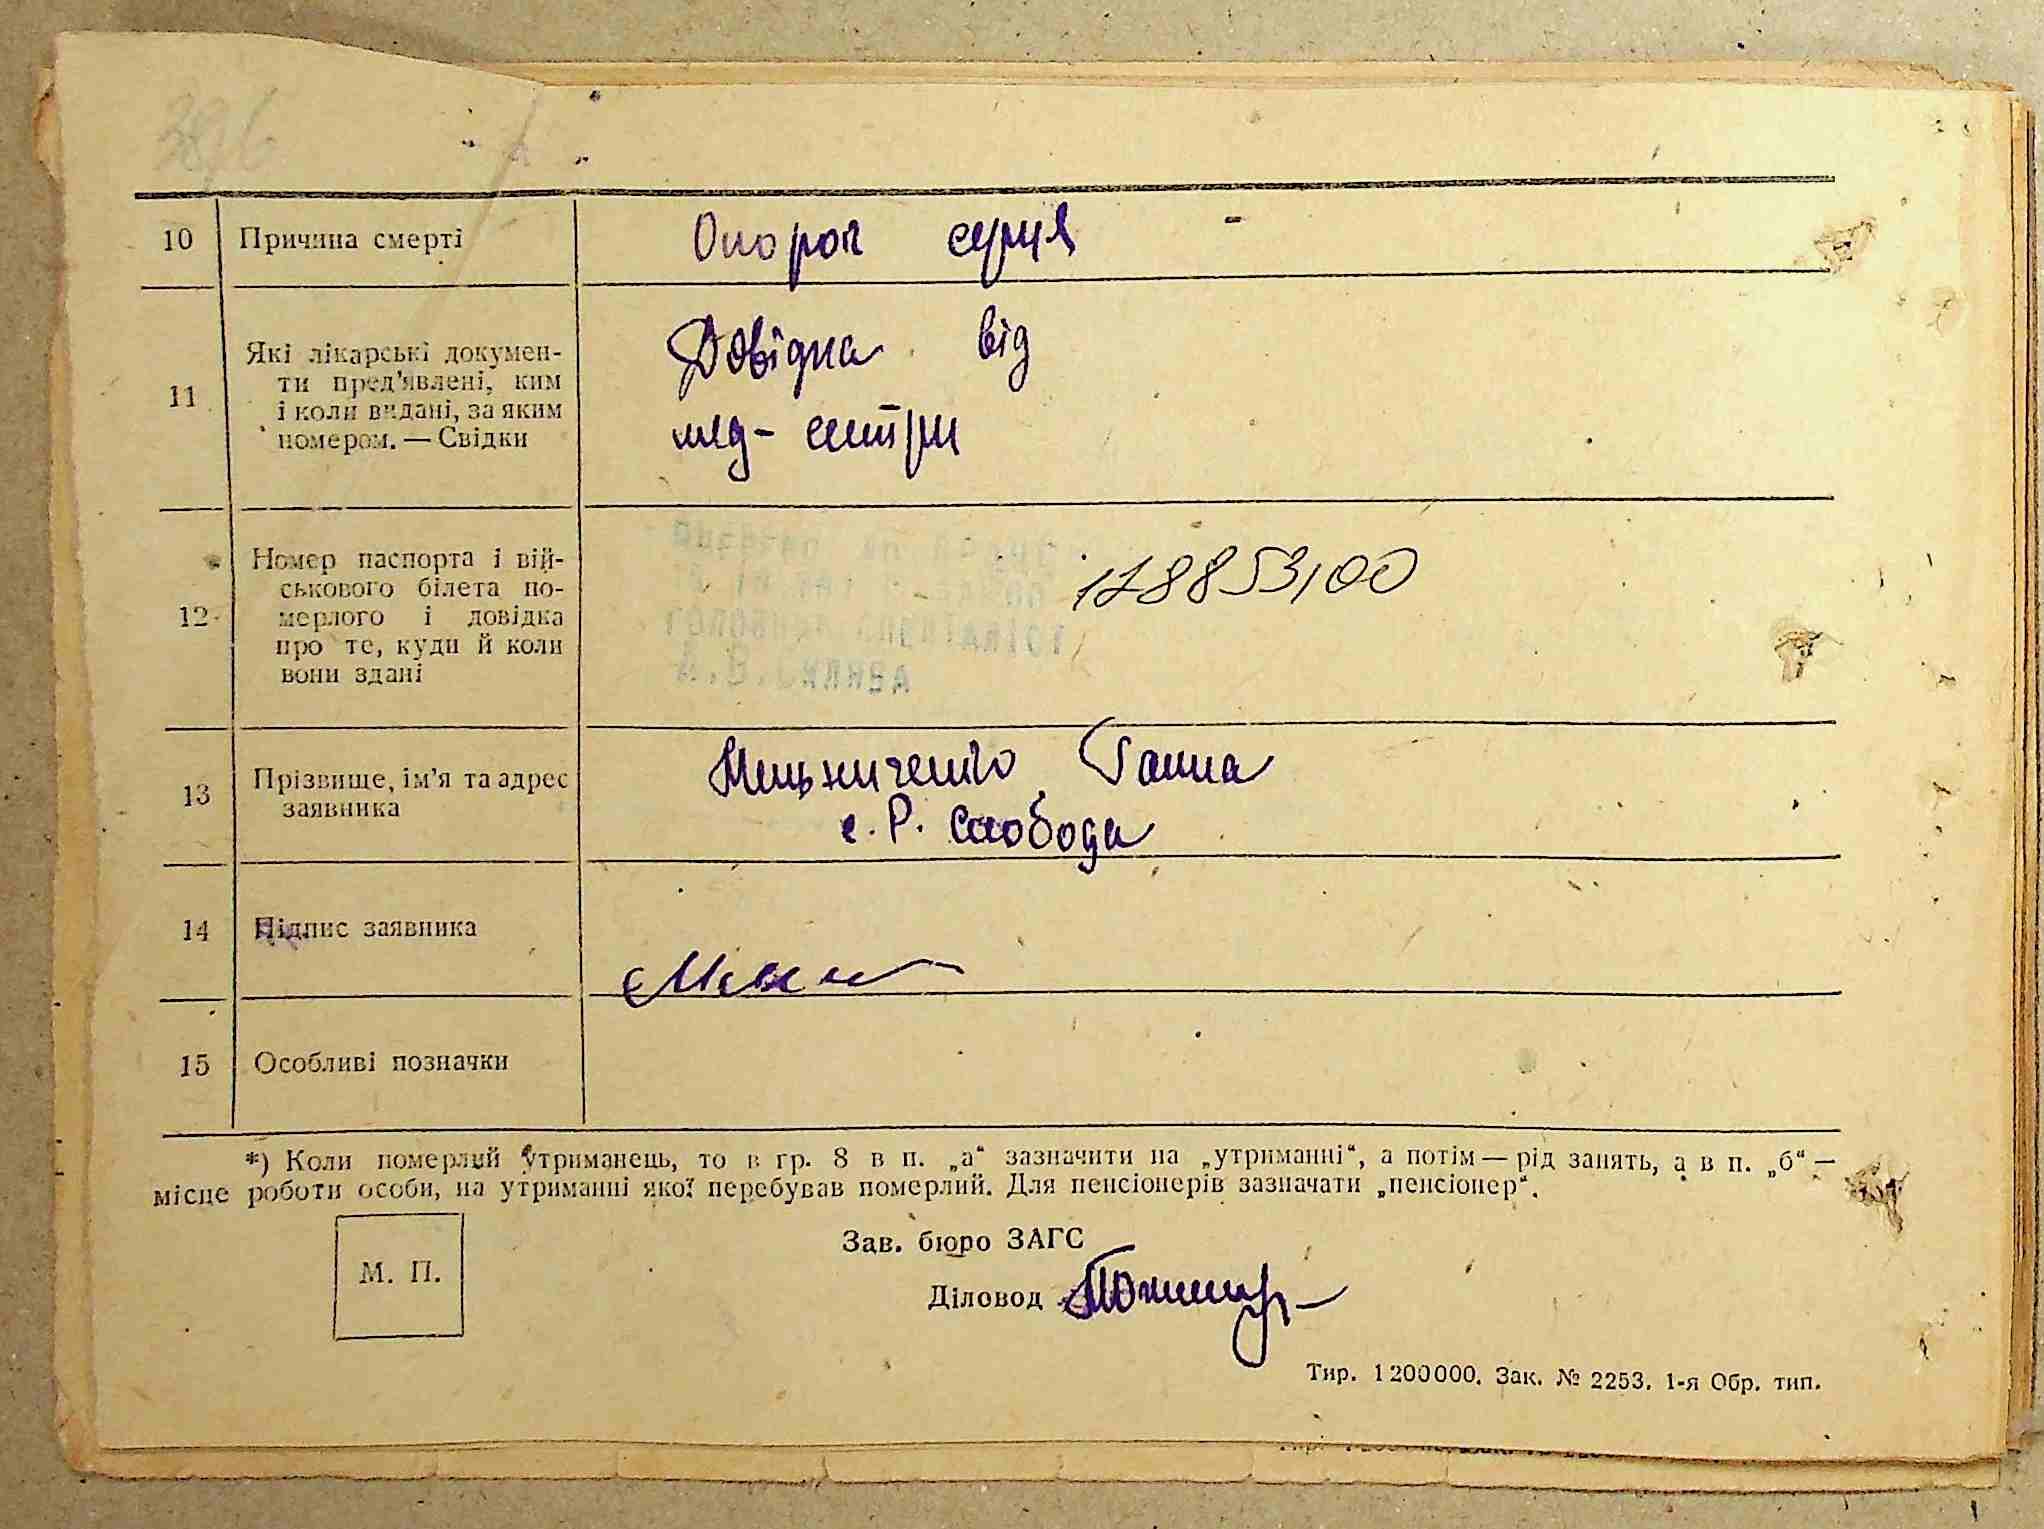 10 Причина смерті Опорог серця
11 Які лікарські докумен-
ти пред'явлені, ким
і коли видані, за яким
номером. — Свідки
Довідка від
мед-сестри
12 Номер паспорта і вій-
ськового білета по-
мерлого і довідка
про те, куди й коли
вони здані
13 Прізвище, ім'я та адрес
заявника
Мельниченко Ганна
с. Р. Слобода
14 Підпис заявника
15 Особливі позначки
*) Коли померлий утриманець, то в гр. 8 в п. „а“ зазначити на „утриманні“, а потім — рід занять, а в п. „б“ —
місце роботи особи, на утриманні якої перебував померлий. Для пенсіонерів зазначати „пенсіонер“.
Зав. бюро ЗАГС
М. П.
Діловод
Тир. 1200000. Зак. № 2253. 1-я Обр. тип.